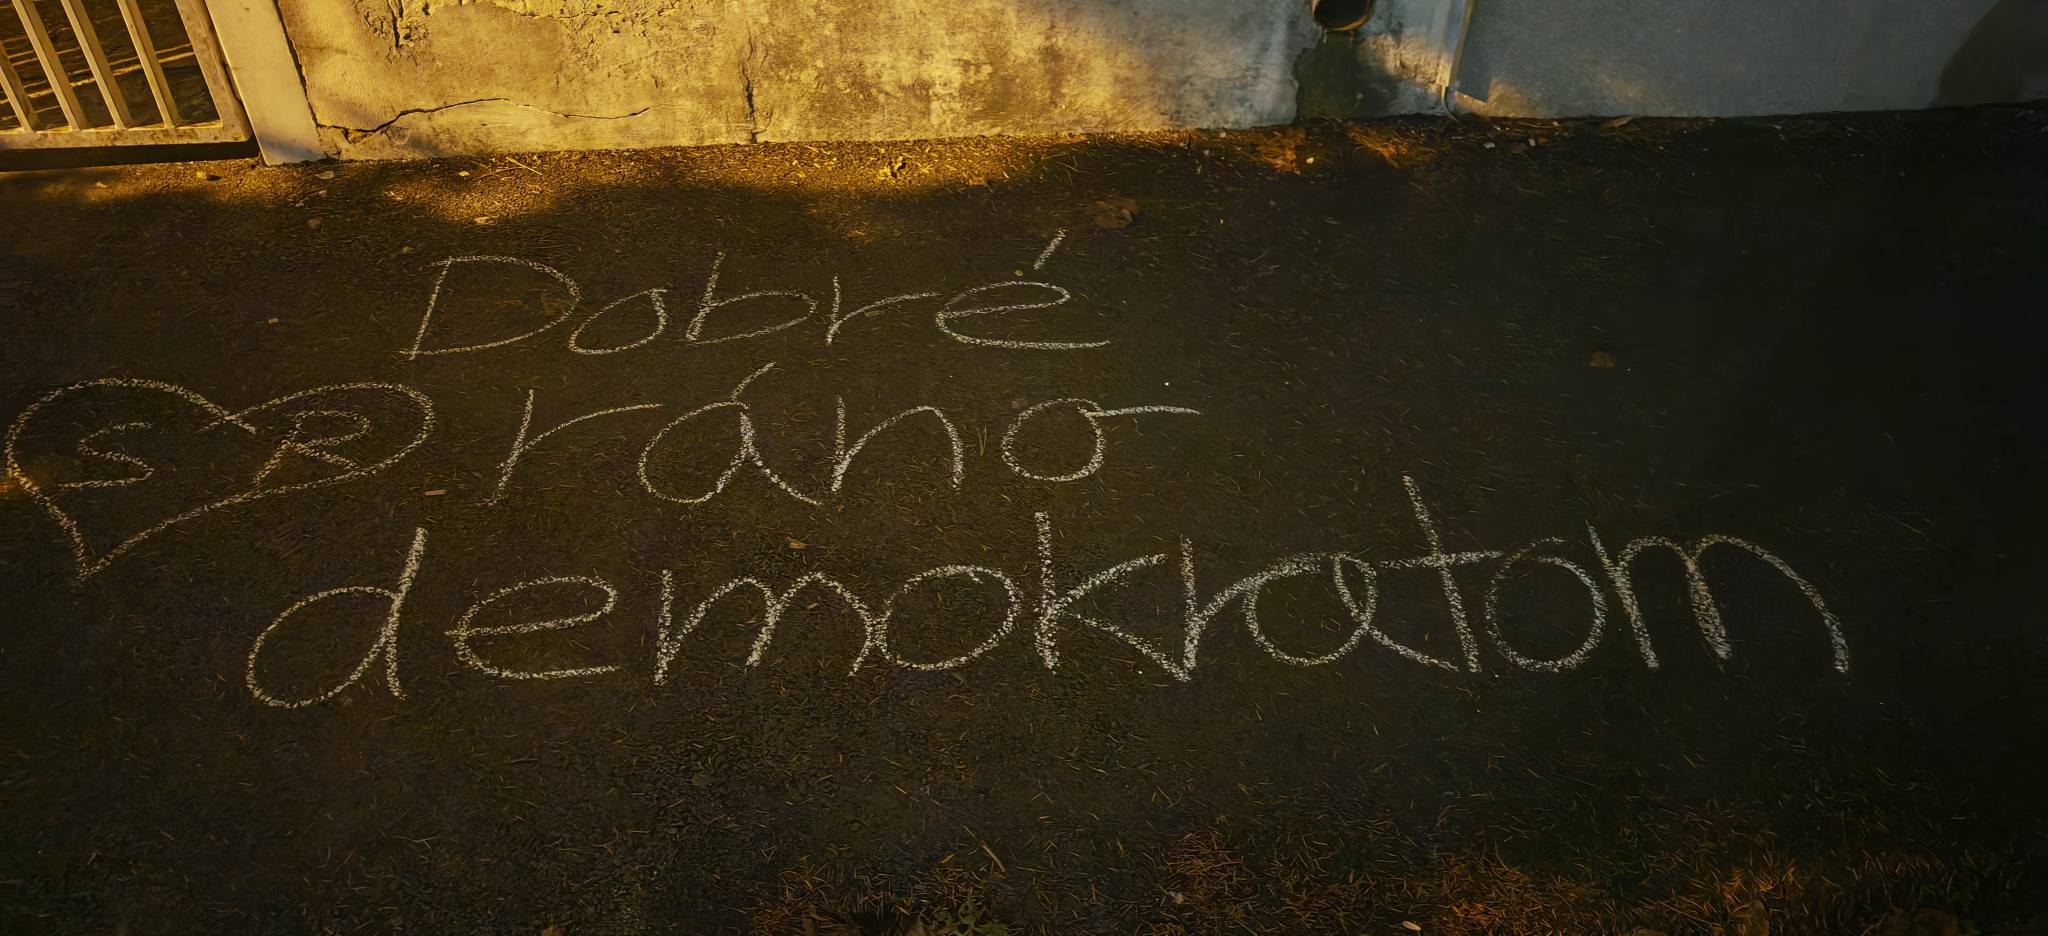 Dobré
SR ráno
demokratom